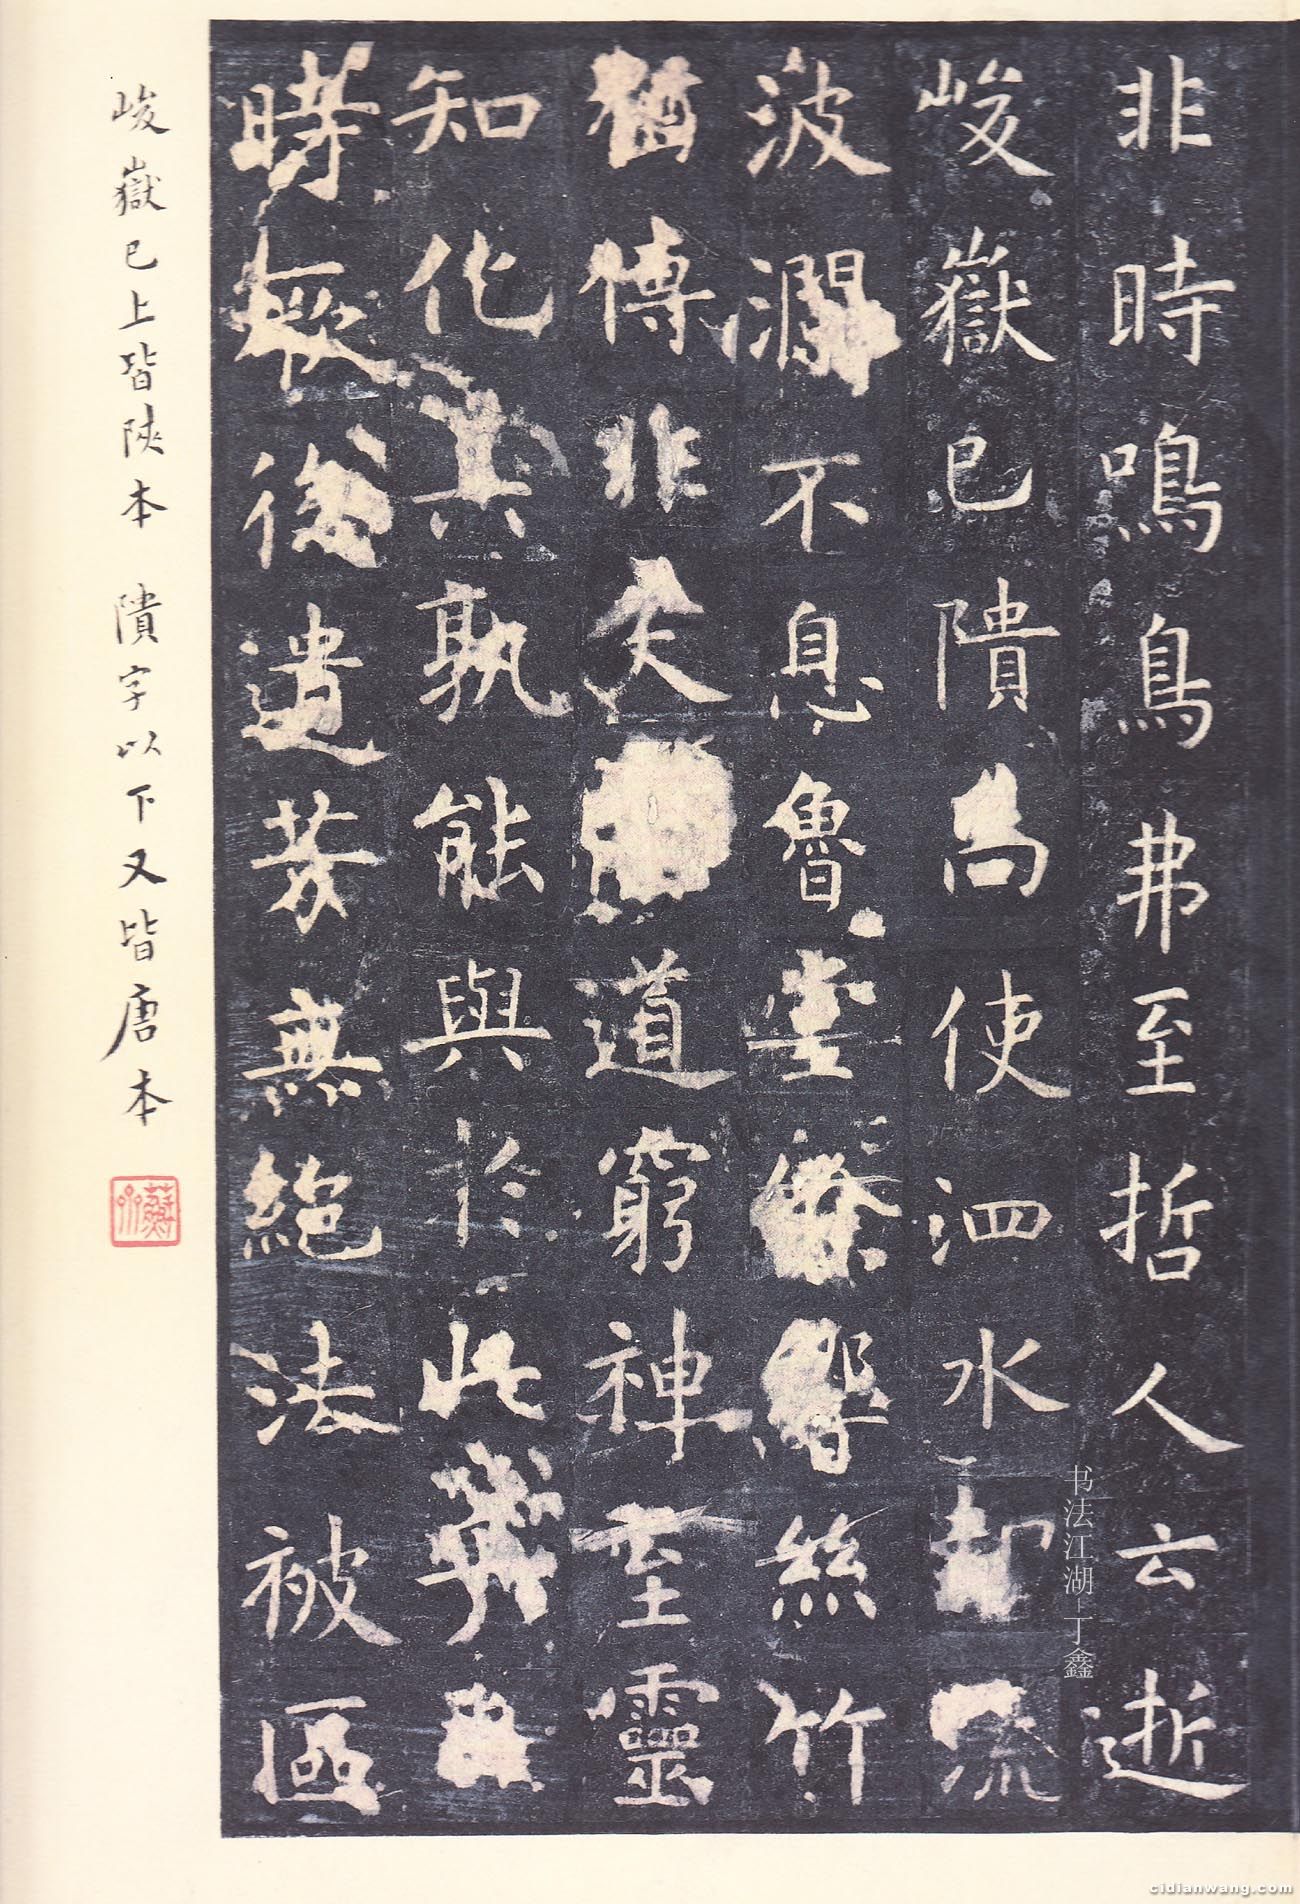 非時鳴鳥弗至哲人云逝
峻嶽已隤尚使泗水卻流
波瀾不息魯堂餘響絲竹
猶傳非夫道窮神至靈
知化其孰能與於此
時厥後遺芳無絕法被區
峻嶽已上皆陝本 隤字以下又皆唐本
书法江湖|丁鑫
cidianwang.com